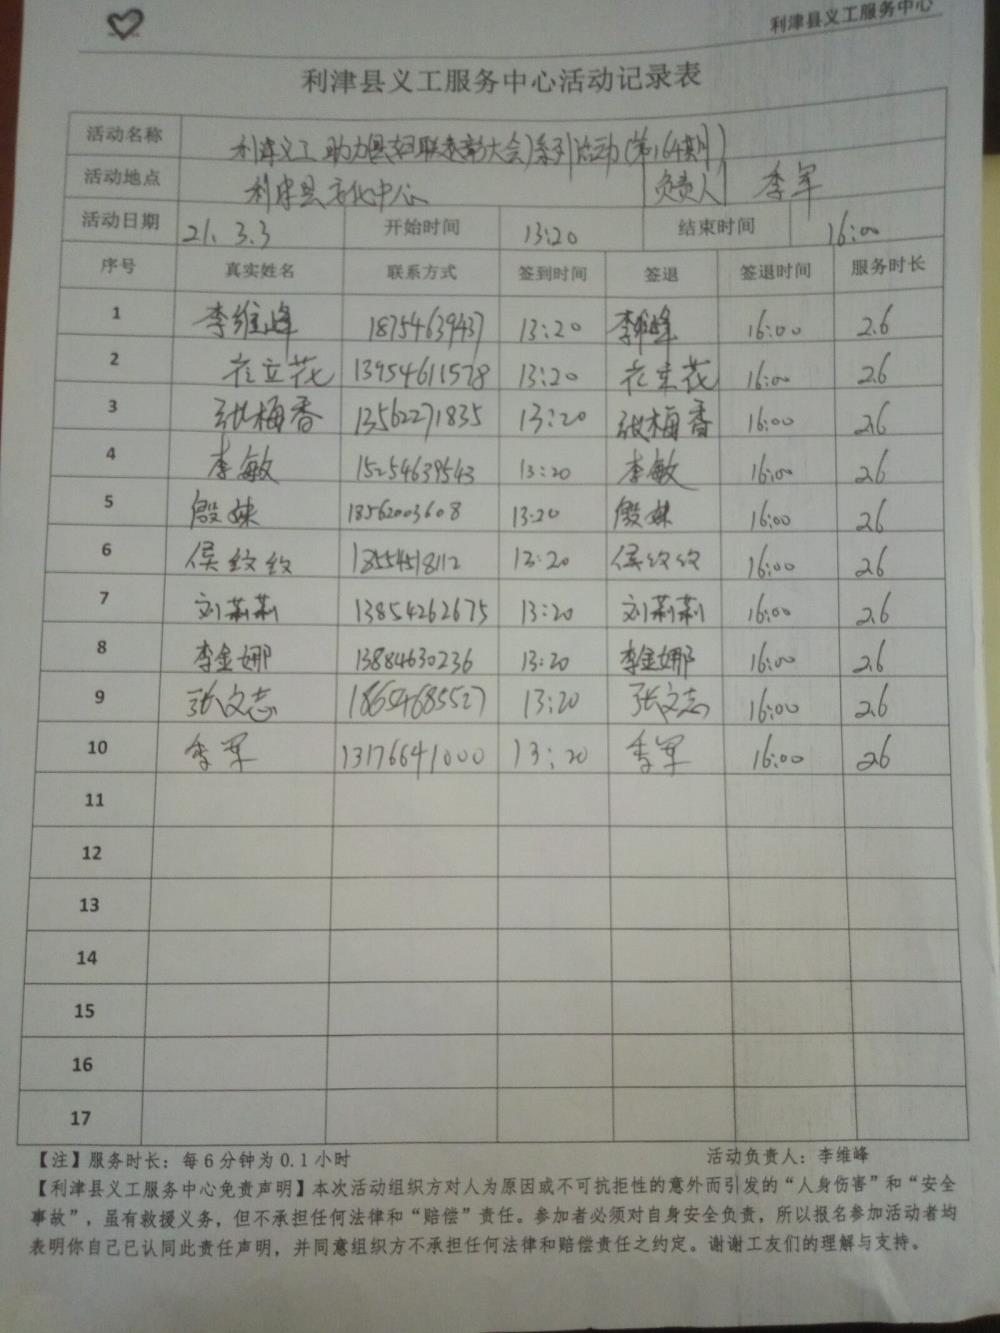 利津县义工服务中心
利津县义工服务中心活动记录表
活动名称 利津义工助力县妇联表彰大会系列活动(第164期)
活动地点 利津县文化中心 负责人 李军
活动日期 21.3.3 开始时间 13:20 结束时间 16:00
序号 真实姓名 联系方式 签到时间 签退 签退时间 服务时长
1 李维峰 18754639437 13:20 李维峰 16:00 2.6
2 崔立花 13954611578 13:20 崔立花 16:00 2.6
3 张梅香 13562271835 13:20 张梅香 16:00 2.6
4 李敏 15254639543 13:20 李敏 16:00 2.6
5 殷妹 18562003608 13:20 殷妹 16:00 2.6
6 侯纹纹 13:20 侯纹纹 16:00 2.6
7 刘莉莉 13854262675 13:20 刘莉莉 16:00 2.6
8 李金娜 13884630236 13:20 李金娜 16:00 2.6
9 张文志 18654685527 13:20 张文志 16:00 2.6
10 李军 13176641000 13:20 李军 16:00 2.6
11
12
13
14
15
16
17
【注】服务时长：每6分钟为0.1小时 活动负责人：李维峰
【利津县义工服务中心免责声明】本次活动组织方对人为原因或不可抗拒性的意外而引发的“人身伤害”和“安全
事故”，虽有救援义务，但不承担任何法律和“赔偿”责任。参加者必须对自身安全负责，所以报名参加活动者均
表明你自己已认同此责任声明，并同意组织方不承担任何法律和赔偿责任之约定。谢谢工友们的理解与支持。